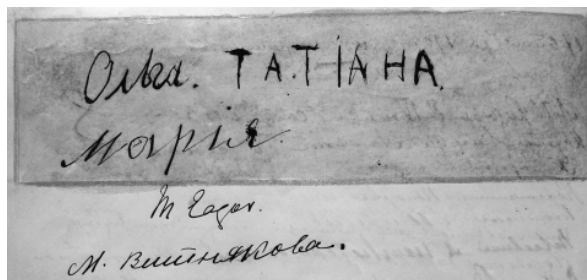 Ольга. ТАТІАНА.
Марія.
M Eagar.
М. Вишнякова.